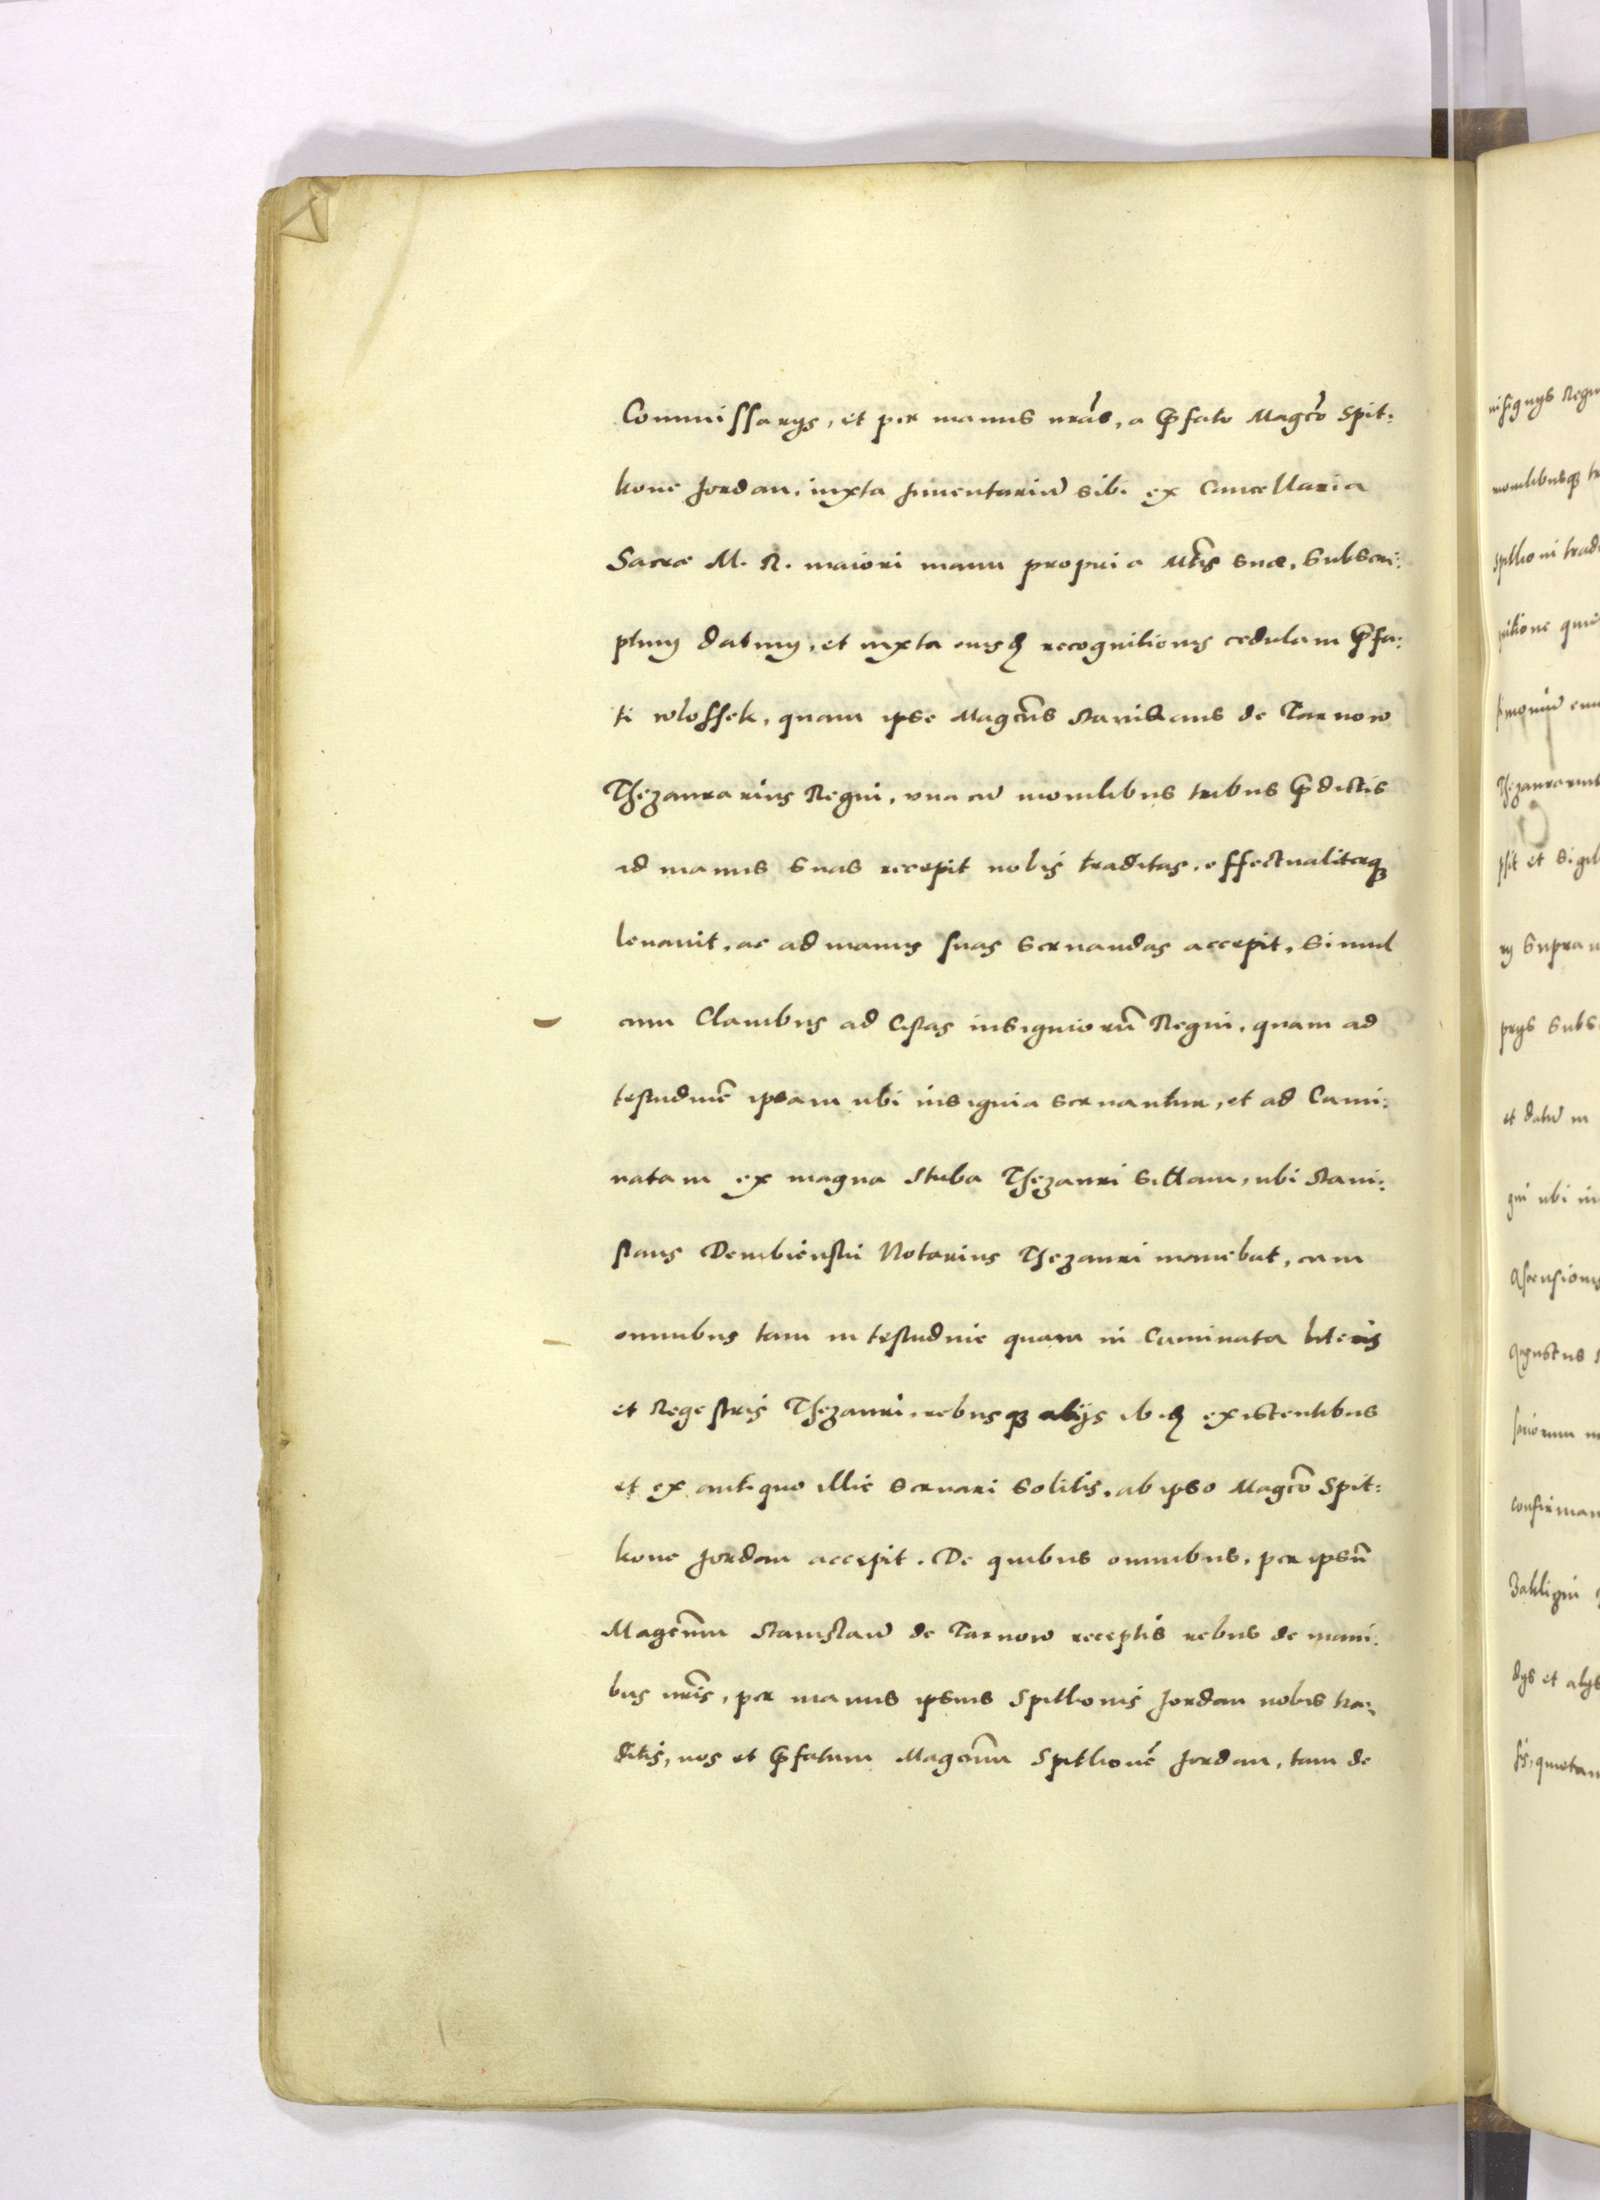 Commissarijs, et per manus nr̃as, a p̃fato Magc̃o Spit:
kone Jordan, iuxta Inuentariũ sibi ex Cancellaria
Sacræ M. R. maiori manu propria Mt̃is suæ, subscri:
ptum datum, et iuxta eiusdẽ recognitionis cedulam p̃fa:
ti wlossek, quam ipse Magc̃us Stanislaus de Tarnow
Thezaurarius Regni, vna cũ monilibus tribus p̃dictis
ad manus suas recepit nobis traditas, effectualiterq₃
leuauit, ac ad manus suas seruandas accepit, simul
cum Clauibus ad Cistas insigniorũ Regni, quam ad
testudinẽ ipsam ubi insignia seruantur, et ad Cami:
natam ex magna stuba Thezauri sittam, ubi Stani:
slaus Dembienski Notarius Thezauri manebat, cum
omnibus tam in testudine quam in Caminata literis
et Regestris Thezauri, rebusq₃ alijs ibidẽ existentibus
et ex antiquo illic seruari solitis, ab ipso Magc̃o Spit:
kone Jordan accepit. De quibus omnibus, per ipsũ
Magc̃um Stanislaũ de Tarnow receptis rebus de mani:
bus nr̃is, per manus ipsius Spitkonis Jordan nobis tra:
ditis, nos et p̃fatum Magc̃um Spitkonẽ Jordan, tam de